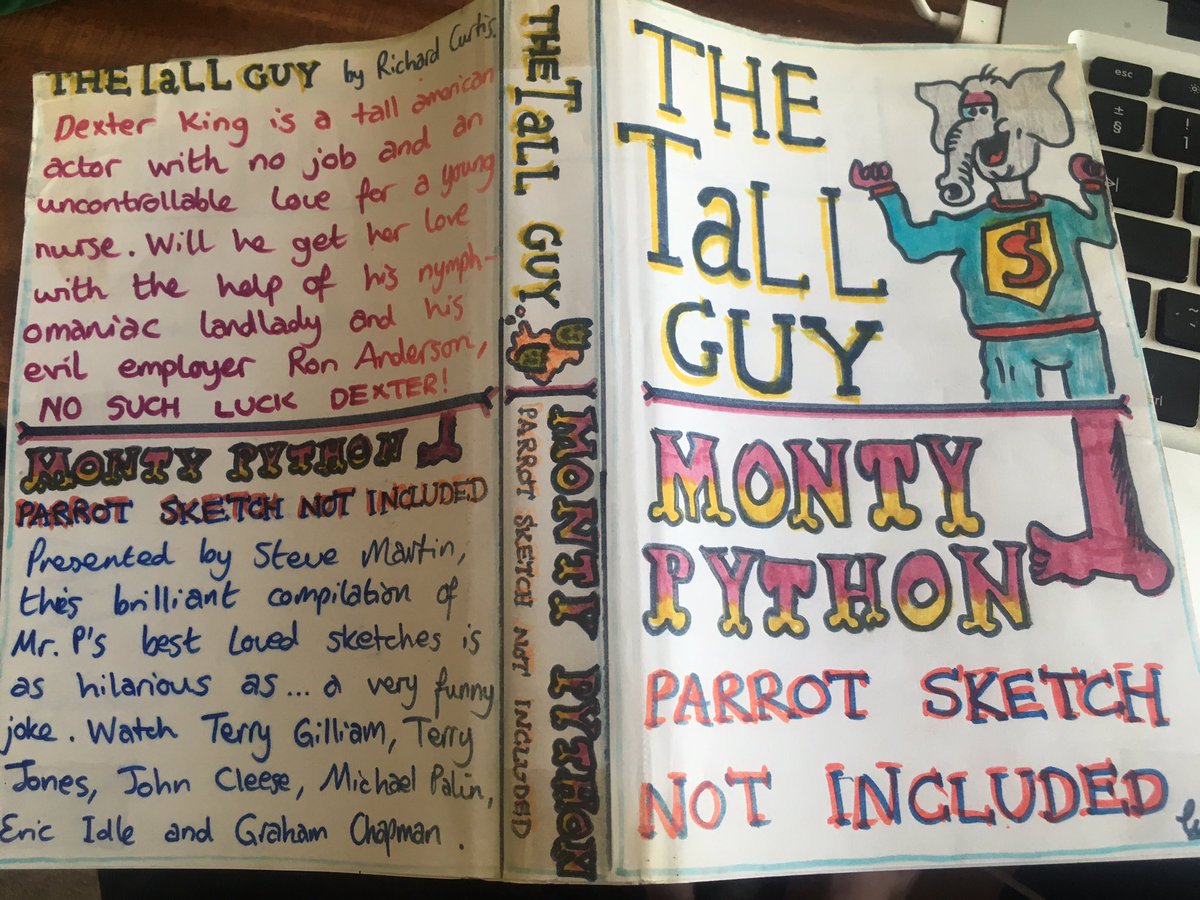 THE TALL GUY by Richard Curtis.
Dexter King is a tall american
actor with no job and an
uncontrollable love for a young
nurse. Will he get her love
with the help of his nymph-
omaniac landlady and his
evil employer Ron Anderson,
NO SUCH LUCK DEXTER!
MONTY PYTHON
PARROT SKETCH NOT INCLUDED
Presented by Steve Martin,
this brilliant compilation of
Mr. P's best loved sketches is
as hilarious as... a very funny
joke. Watch Terry Gilliam, Terry
Jones, John Cleese, Michael Palin,
Eric Idle and Graham Chapman.
THE TaLL GUY.
MONTY PYTHON
PARROT SKETCH NOT INCLUDED
THE
TaLL
GUY
S
MONTY
PYTHON
PARROT SKETCH
NOT INCLUDED
esc
±
§
!
1